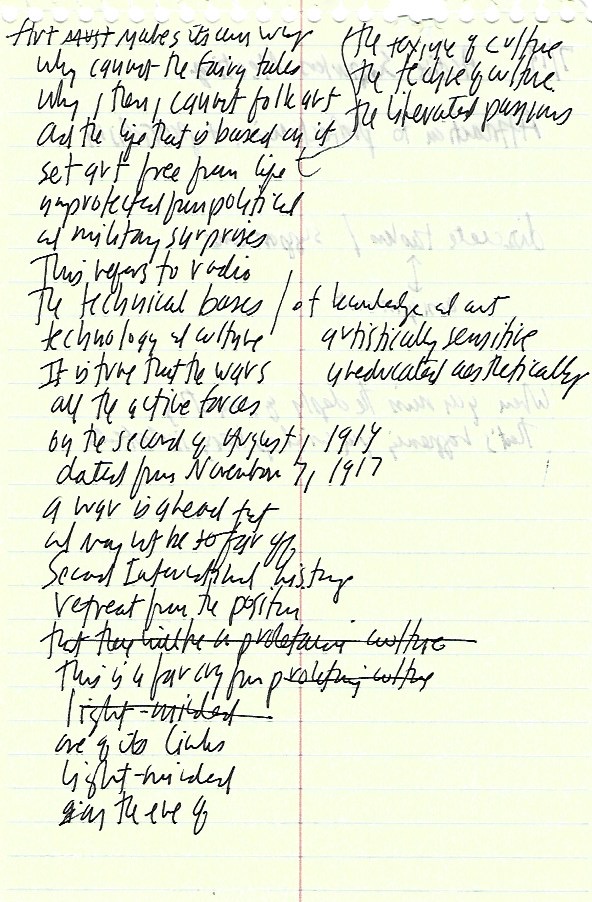 Art must makes its own way
why cannot the fairy tales
why, then, cannot folk art
and the life that is based on it
set art free from life
the texture of culture
the of culture
the liberated passions
unprotected from political
and military surprises
This refers to radio
The technical bases / of knowledge and art
technology and culture artistically sensitive
It is true that the wars uneducated aesthetically
all the active forces
on the second of August, 1914
dated from November 7, 1917
a war is ahead
and may not be too far off
Second International history
retreat from the position
that they will be a proletarian culture
This is a far cry from proletarian culture
light-minded
one of its links
light-minded
on the eve of